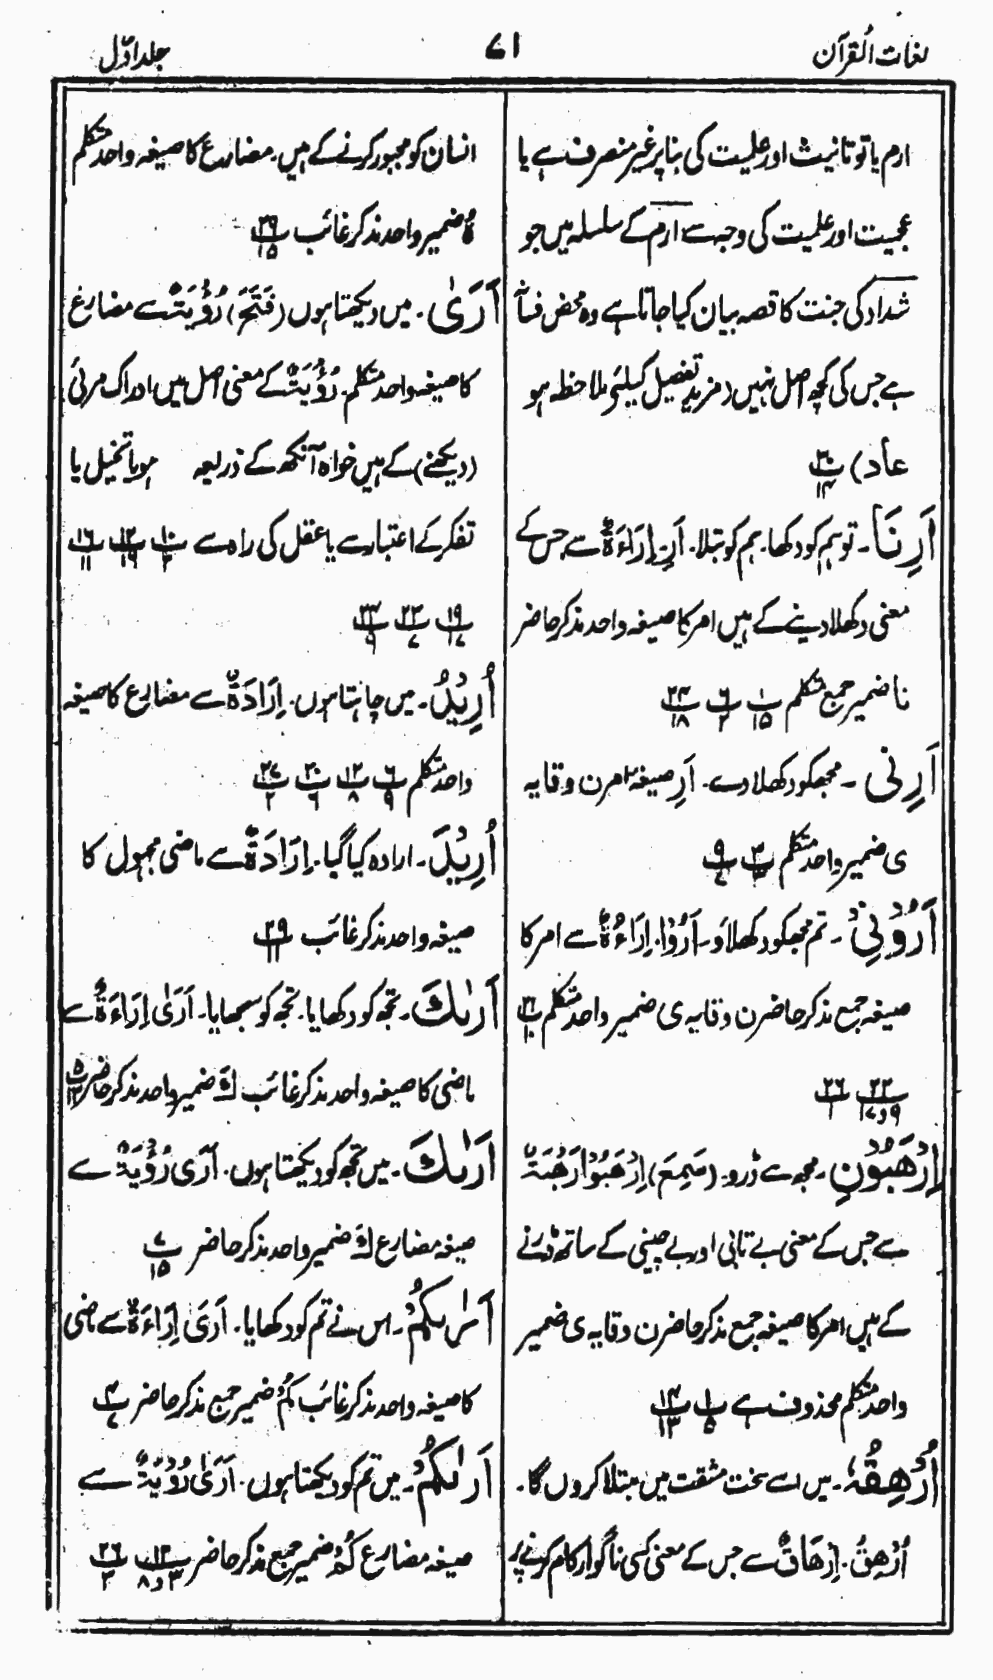 لغات القرآن
۷۱
جلد اوّل
ارم یا تو تانیث اور علمیت کی بنا پر غیر منصرف ہے یا
عجمیت اور علمیت کی وجہ سے ارم کے سلسلہ میں جو
شداد کی جنت کا قصہ بیان کیا جاتا ہے وہ محض فسانہ
ہے جس کی کچھ اصل نہیں (مزید تفصیل کیلئے ملاحظہ ہو
عاد) پ۳۰/۱۴
اَرِنَا۔ تو ہم کو دکھا۔ ہم کو بتلا۔ اَرِ۔ اِرَاءَةٌ سے جس کے
معنی دکھلا دینے کے ہیں امر کا صیغہ واحد مذکر حاضر
نا ضمیر جمع متکلم پ۱/۱۵ پ۶/۲ پ۲۴/۱۸
اَرِنی۔ مجھکو دکھلا دے۔ اَرِ صیغۂ امر ن وقایہ
ی ضمیر واحد متکلم پ۳/۳ پ۹/۷
اَرُوْنِیْ۔ تم مجھکو دکھلاؤ۔ اَرُوْا۔ اِرَاءَةٌ سے امر کا
صیغہ جمع مذکر حاضر ن وقایہ ی ضمیر واحد متکلم پ۲۱/۱۰
پ۲۲/۹و۱۷ پ۲۶/۱
اِرْهَبُوْنِ۔ مجھ سے ڈرو۔ (سَمِعَ) اِرْهَبُوْا رَهْبَةٌ
سے جس کے معنی بے تابی اور بے چینی کے ساتھ ڈرنے
کے ہیں امر کا صیغہ جمع مذکر حاضر ن وقایہ ی ضمیر
واحد متکلم محذوف ہے پ۱/۵ پ۱۴/۱۳
اُرْهِقُهٗ۔ میں اسے سخت مشقت میں مبتلا کروں گا۔
اُرْهِقُ۔ اِرْهَاقٌ سے جس کے معنی کسی ناگوار کام کرنے پر
انسان کو مجبور کرنے کے ہیں۔ مضارع کا صیغہ واحد متکلم
هُ ضمیر واحد مذکر غائب پ۲۹/۱۵
اَرَىٰ۔ میں دیکھتا ہوں (فَتَحَ) رُؤْيَةٌ سے مضارع
کا صیغہ واحد متکلم۔ رُؤْيَةٌ کے معنی اصل میں ادراک مرئی
(دیکھنے) کے ہیں خواہ آنکھ کے ذریعہ ہو یا تخیل یا
تفکر کے اعتبار سے یا عقل کی راہ سے پ۱۰/۲ پ۱۲/۱۶ پ۱۶/۱۱
پ۱۹/۱۷ پ۲۳/۷ پ۲۴/۹
اُرِيْدُ۔ میں چاہتا ہوں۔ اِرَادَةٌ سے مضارع کا صیغہ
واحد متکلم پ۶/۹ پ۱۲/۸ پ۲۰/۶ پ۲۷/۲
اُرِيْدَ۔ ارادہ کیا گیا۔ اِرَادَةٌ سے ماضی مجہول کا
صیغہ واحد مذکر غائب پ۲۹/۱۱
اَرٰىكَ۔ تجھ کو دکھایا۔ تجھ کو سجھایا۔ اَرَىٰ اِرَاءَةٌ سے
ماضی کا صیغہ واحد مذکر غائب كَ ضمیر واحد مذکر حاضر پ۵/۱۳
اَرٰىكَ۔ میں تجھ کو دیکھتا ہوں۔ اَرَى رُؤْيَةٌ سے
صیغہ مضارع كَ ضمیر واحد مذکر حاضر پ۷/۱۵
اَرٰىكُمْ۔ اس نے تم کو دکھایا۔ اَرَىٰ اِرَاءَةٌ سے ماضی
کا صیغہ واحد مذکر غائب كُمْ ضمیر جمع مذکر حاضر پ۴/۷
اَرٰىكُمْ۔ میں تم کو دیکھتا ہوں۔ اَرَىٰ رُؤْيَةٌ سے
صیغہ مضارع كُمْ ضمیر جمع مذکر حاضر پ۱۲/۳و۸ پ۲۶/۲